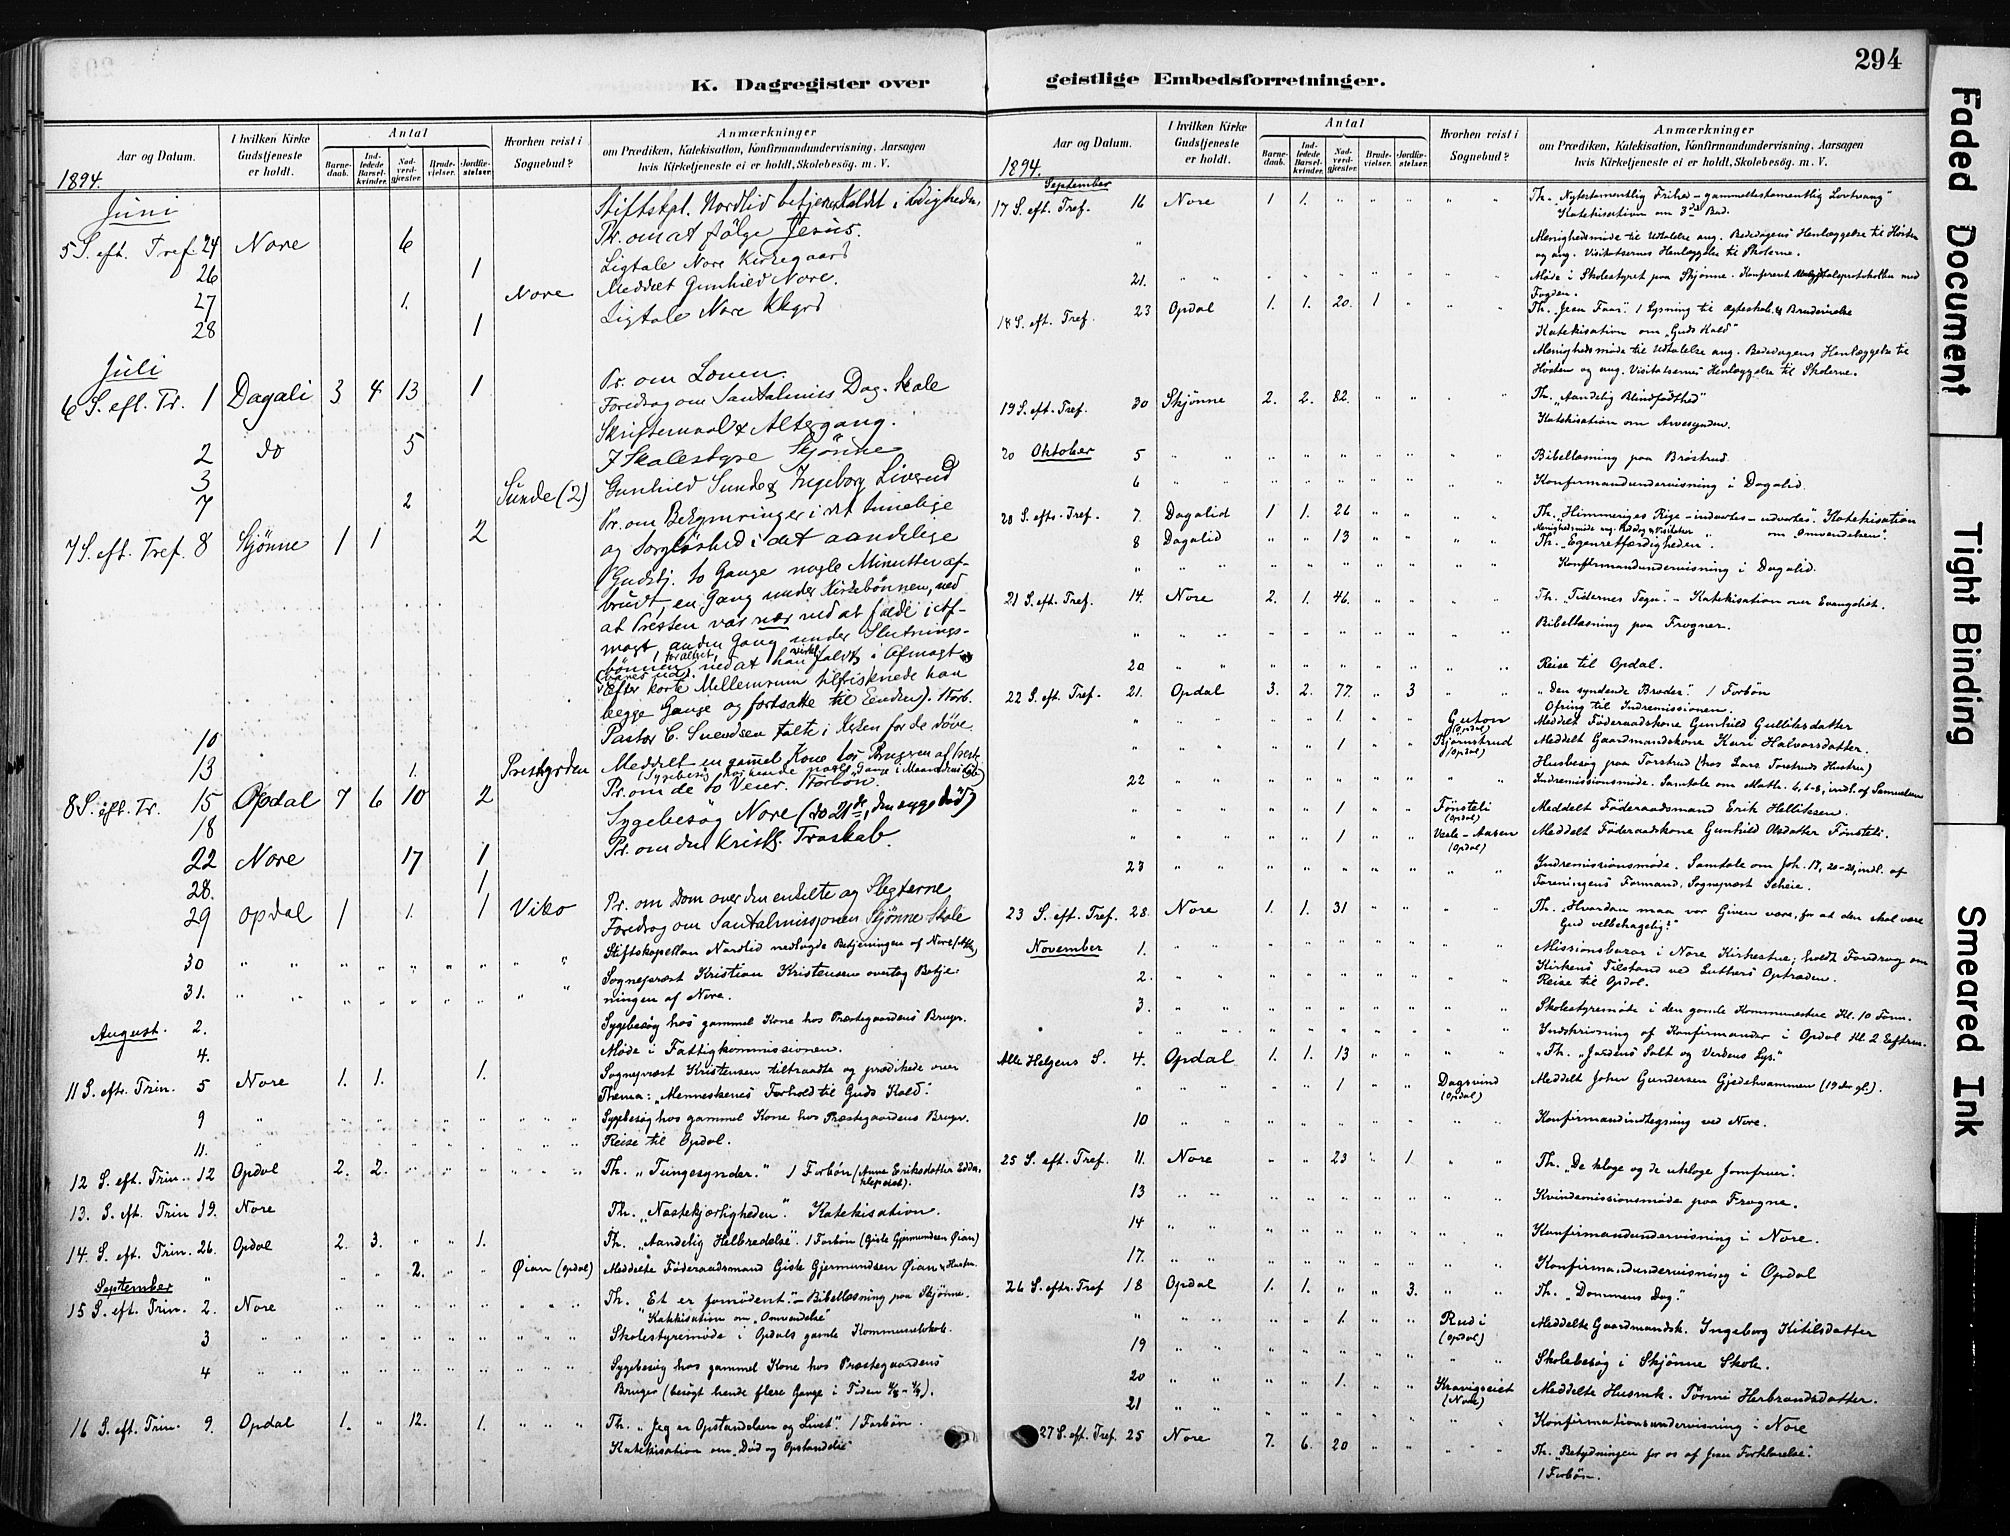 294
K. Dagregister over geistlige Embedsforretninger.
Aar og Datum.
I hvilken Kirke Gudstjeneste er holdt.
Antal
Barnedaab.
Indledede Barselkvinder.
Nadverdgjæster.
Brudevielser.
Jordfæstelser.
Hvorhen reist i Sognebud?
Anmærkninger
om Prædiken, Katekisation, Konfirmandundervisning, Aarsagen
hvis Kirketjeneste ei er holdt, Skolebesøg. m. V.
1894.
Juni
Stiftskpl. Nordlid betjener Kaldet i Ledigheden.
5 S. eft. Tref. 24 Nore 6 Pr. om at følge Jesus.
26 1 Ligtale Nore Kirkegaard
27 1. Nore Meddelt Gunhild Nore.
28 1 Ligtale Nore Kkgrd
Juli
6 S. eft. Tr. 1 Dagali 3 4 13 1 Pr. om Loven.
Foredrag om Santalmiss Dag. Skole
2 do 5 Skriftemaal & Altergang.
3 I Skolestyre Skjønne
7 2 Sunde (2) Gunhild Sunde & Ingeborg Liverud
7 S. eft. Tref. 8 Skjønne 1 1 2 Pr. om Bekymringer i det timelige
og Sorgløshed i det aandelige
(Gudstj. to Gange nogle Minutter af-
brudt, en Gang under Kirkebønnen, ved
at Presten var nær ved at falde i Af-
magt, anden Gang under Slutnings-
bønnen, ved at han virkl. faldt i Afmagt
Efter korte Mellemrum tilfrisknede han
begge Gange og fortsatte til Enden). 1 Forb.
10 Pastor C. Svendsen talte i Kirken for de døve
13 1. Prestgrden Meddelt en gammel Kone hos Brugeren af Prest-
8 S. eft. Tr. 15 Opdal 7 6 10 2 Pr. om de to Veier. 1 Forbøn.
18 Sygebesøg Nore (do 21de, den syge død)
22 Nore 17 1 Pr. om den kristl. Troskab.
28. 1
29 Opdal 1 1. 1 Viko Pr. om Dom over den enkelte og Slegterne
Foredrag om Santalmissjonen Skjønne Skole
30 Stiftskapellan Nordlid nedlagde Betjeningen af Nore
31. Sogneprest Kristian Kristensen overtog Betje-
ningen af Nore.
August. 2. Sygebesøg hos gammel Kone hos Præstegaardens Bruger.
4. Møde i Fattigkommissionen.
11 S. eftr. Trin. 5 Nore 1. 1. 1. Sogneprest Kristensen tiltraadte og prædikede over
Thema: „Menneskenes Forhold til Guds Kald".
9 Sygebesøg hos gammel Kone hos Præstegaardens Bruger.
11. Reise til Opdal.
12 S. eft. Trin. 12 Opdal 2. 2. Th. „Tungesynder." 1 Forbøn (Anne Eriksdatter
13. S. eft. Trin 19. Nore Th. „Næstekjærligheden". Katekisation.
14. S. eft. Trin. 26. Opdal 2. 3. 1. Th. „Aandelig Helbredelse". 1 Forbøn (Gisle Gjermundsen Øian)
" 2. Øian (Opdal) Meddelte Føderaadsmand Gisle Gjermundsen Øian & Hustru.
September
15 S. eft. Trin. 2. Nore Th. „Et er fornødent" – Bibellæsning paa Skjønne.
Katekisation om „Omvendelse"
3 Skolestyremøde i Opdals gamle Kommunelokale.
4 Sygebesøg hos gammel Kone hos Præstegaardens
Bruger (besøgt hende flere Gange i Tiden
16 S. eft. Trin. 9. Opdal 1. " 12. 1. Th. „Jeg er Opstandelsen og Livet" 1 Forbøn.
Katekisation om „Død og Opstandelse"
Aar og Datum.
I hvilken Kirke Gudstjeneste er holdt.
Antal
Barnedaab.
Indledede Barselkvinder.
Nadverdgjæster.
Brudevielser.
Jordfæstelser.
Hvorhen reist i Sognebud?
Anmærkninger
om Prædiken, Katekisation, Konfirmandundervisning, Aarsagen
hvis Kirketjeneste ei er holdt, Skolebesøg. m. V.
1894.
September
17 S. eft. Tref. 16 Nore 1 1. Th. „Nytestamentlig Frihed – gammeltestamentlig Lovtvang"
Katekisation om 3die Bud.
Menighedsmøde til Udtalelse ang. Bededagens Henlæggelse til Høsten
og ang. Visitatsernes Henlæggelse til Skolerne.
21. Møde i Skolestyret paa Skjønne. Konfereret Valgprotokollen med
Fogden.
18 S. eft. Tref. 23 Opdal 1. 1. 20. 1 1 Lysning til Ægteskab. & Brudevielse
Katekisation om „Guds Kald"
Menighedsmøde til Udtalelse ang. Bededagens Henlæggelse til
Høsten og ang. Visitatsernes Henlæggelse til Skolerne.
19 S. eft. Tref. 30 Skjønne 2. 2. 82. Th. „Aandelig Blindfødthed"
Katekisation om Arvesynden.
Oktober 5 Bibellæsning paa Brøstrud.
6 Konfirmandundervisning i Dagalid.
20 S. eft. Tref. 7. Dagalid 1 1. 26 Th. „Himmeriges Rige – indvortes – udvortes". Katekisation
om Omvendelsen".
8 Dagalid 13 Th. „Egenretfærdigheden".
Konfirmandundervisning i Dagalid.
21 S. eft. Tref. 14. Nore 2. 1. 46. Th. „Tidernes Tegn". – Katekisation over Evangeliet.
Bibellæsning paa Frogner.
20 Reise til Opdal.
22 S. eft. Tref. 21. Opdal 3. 2. 77. 3 „Den syndende Broder". 1 Forbøn
Ofring til Indremissionen.
1. Guton (Opdal) Meddelt Føderaadskone Gunhild Gulliksdatter
1 Bjørnstrud (Opdal) Meddelt Gaardmandskone Kari Halvorsdatter.
Husbesøg paa Torstrud (hos Lars Torstruds Hustru)
22 Indremissionsmøde. Samtale om Matth. 6, 6-8, indl. af
1 Fønsteli (Opdal) Meddelt Føderaadsmand Erik Helliksen.
1 Vesle-Aasen (Opdal) Meddelt Føderaadskone Gunhild Olsdatter Fønsteli.
23 Indremissionsmøde. Samtale om Joh. 17, 20-26, indl. af
Foreningens Formand, Sogneprest Scheie.
23 S. eft. Tref. 28. Nore 1. 1. 31 Th. „Hvordan maa vor Given være, for at den skal være
Gud velbehagelig?"
November 1. Missionsbasar i Nore Kirkestue; holdt Foredrag om
Kirkens Tilstand ved Luthers Optræden.
2. Reise til Opdal.
3. Skolestyremøde i den gamle Kommunestue Kl. 10 Form.
Indskrivning af Konfirmander i Opdal Kl. 2 Efterm.
Alle Helgens S. 4. Opdal 1. 1. 13 Th. „Jordens Salt og Verdens Lys."
1 Dagsvind (Opdal) Meddelt John Gundersen Gjedehvammen (19 Aar gl.).
10 Konfirmandindtegning ved Nore.
25 S. eft. Tref. 11. Nore 23 1. Th. „De kloge og de ukloge Jomfruer".
13 Kvindemissionsmøde paa Frogne.
14 Konfirmandundervisning i Nore.
17. Konfirmandundervisning i Opdal
26 S. eftr. Tref 18 Opdal 1. 1. 3. Th. „Dommens Dag."
1. Rudi (Opdal) Meddelte Gaardmandsk. Ingeborg Kitilsdatter
19 Skolebesøg i Skjønne Skole.
20 1. Kravigseiet (Nore) Meddelte Husmk. Tørine Herbrandsdatter.
21 Konfirmationsundervisning i Nore
27 S. eft. Tref. 25 Nore 7. 6. 20 Th. „Betydningen for os af Jesu Forklarelse".
1 Forbøn.
Faded Document
Tight Binding
Smeared Ink